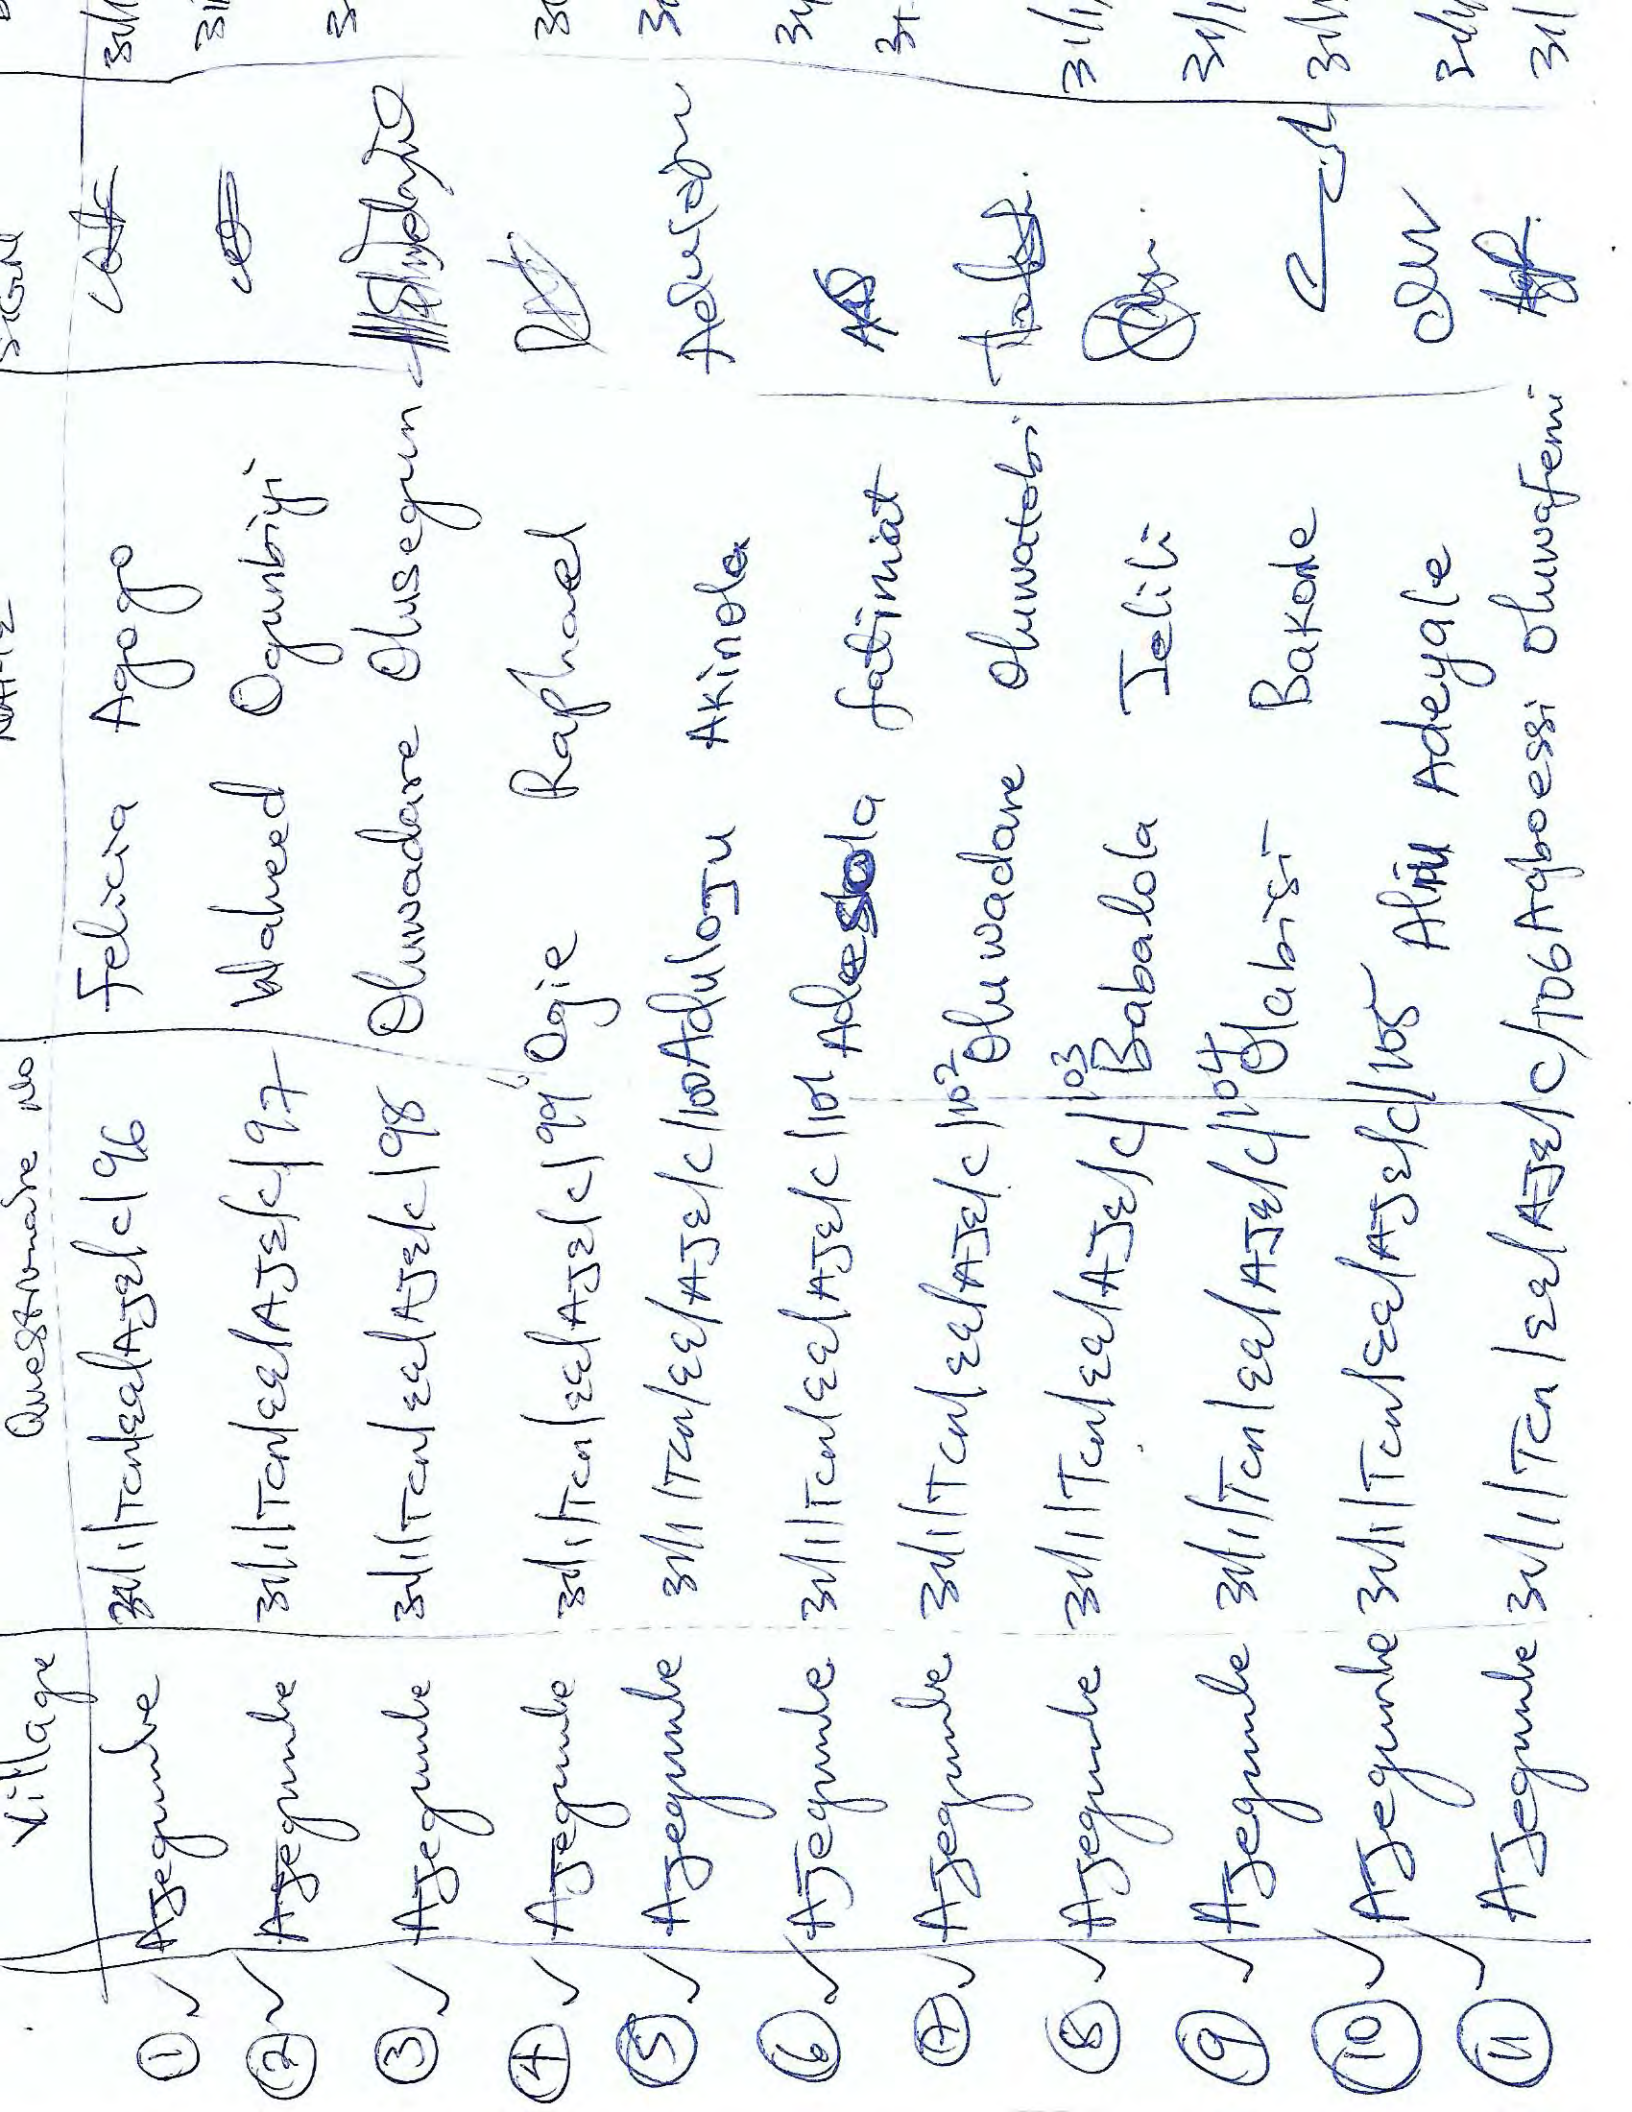 Village Questionnaire No NAME
① ✓ Ajegunle 31/1/Tcn/EE/AJE/C/96 Felicia Agogo 31/1
② ✓ Ajegunle 31/1/Tcn/EE/AJE/C/97 Waheed Ogunbiyi
③ ✓ Ajegunle 31/1/Tcn/EE/AJE/C/98 Oluwadare Olusegun
④ ✓ Ajegunle 31/1/Tcn/EE/AJE/C/99 Ogie Raphael
⑤ ✓ Ajegunle 31/1/Tcn/EE/AJE/C/100 Aduloju Akinola
⑥ ✓ Ajegunle 31/1/Tcn/EE/AJE/C/101 Adesola fatimat
⑦ ✓ Ajegunle 31/1/Tcn/EE/AJE/C/102 Oluwadare Oluwatobi
⑧ ✓ Ajegunle 31/1/Tcn/EE/AJE/C/103 Babalola Jelili 31/1/
⑨ ✓ Ajegunle 31/1/Tcn/EE/AJE/C/104 Olabisi Bakare 31/1
⑩ ✓ Ajegunle 31/1/Tcn/EE/AJE/C/105 Adeyale 31/1
⑪ ✓ Ajegunle 31/1/Tcn/EE/AJE/C/106 Agboessi Oluwafemi 31/